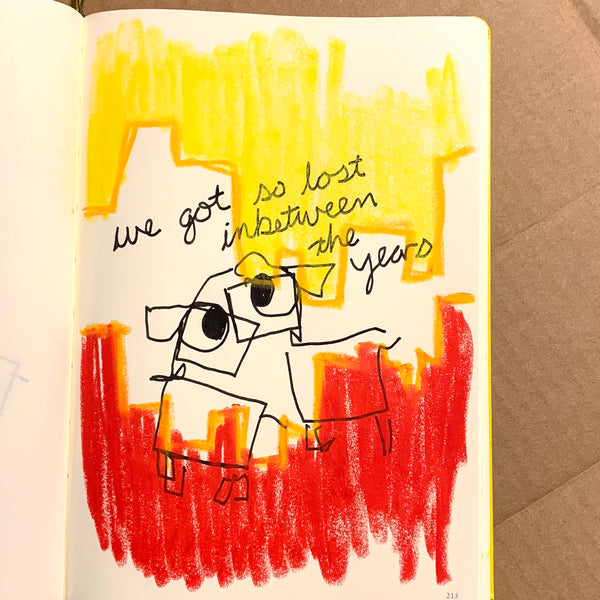 we got so lost
inbetween
the years
215